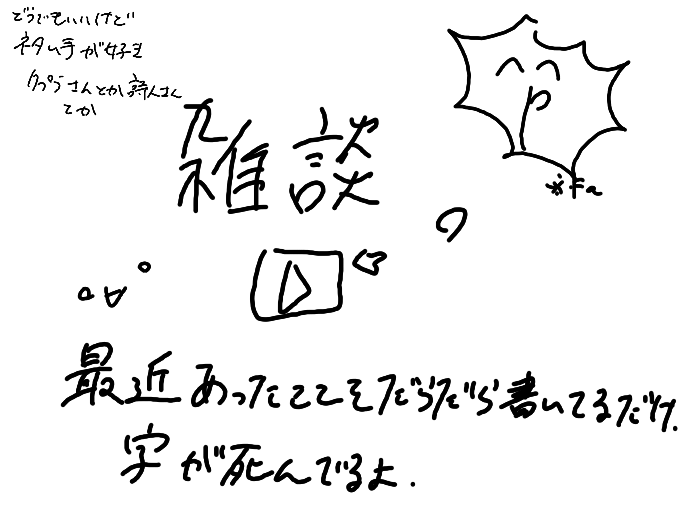 どうでもいいけど
ネタい手が好き
クプラさんとか詩人さん
とか
雑談
※Fa
の
。∀゜
最近あったことをだらだら書いてるだけ.
字が死んでるよ.